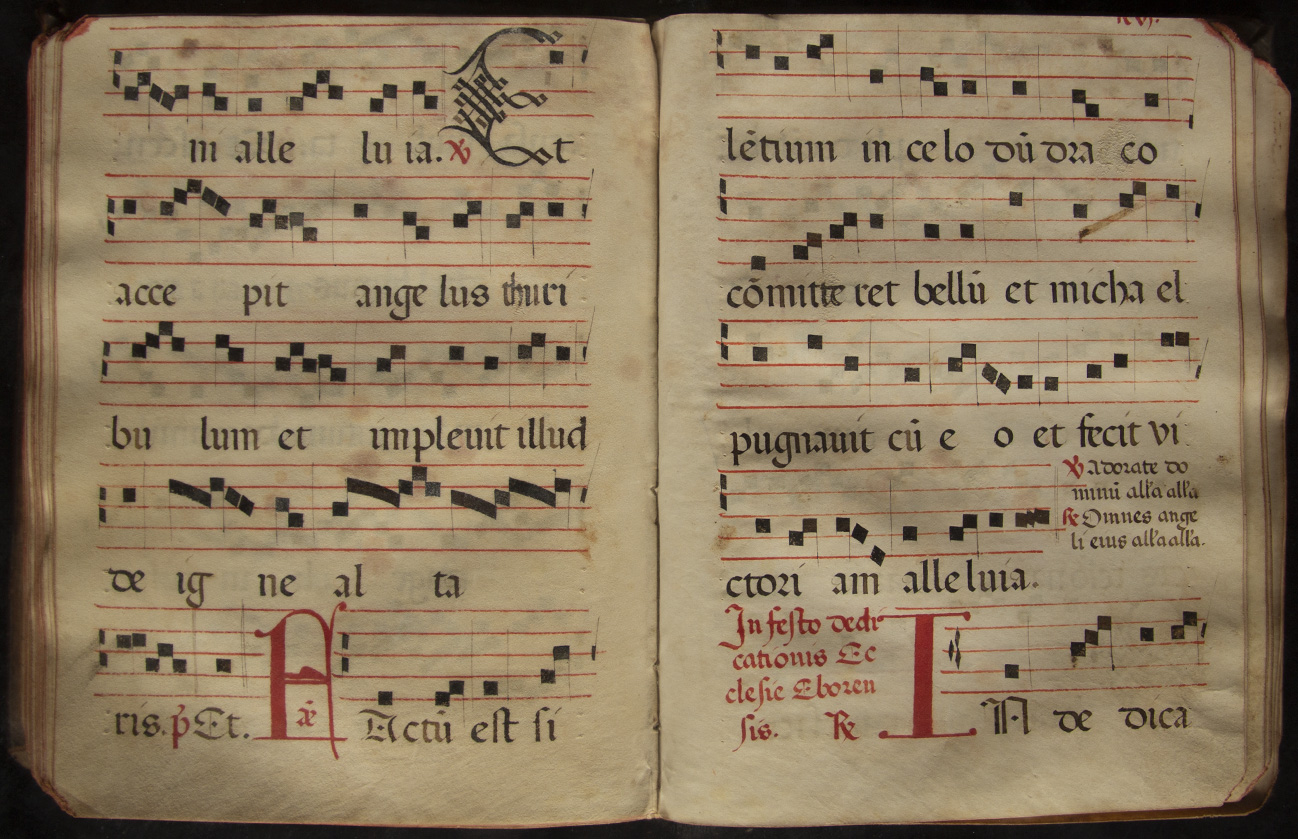 in alle lu ia. ℣ Et
acce pit ange lus thuri
bu lum et impleuit illud
de ig ne al ta
ris. p̃ Et. A añ Actũ est si
lẽtium in ce lo dũ dra co
cõmitte ret bellũ et micha el
pugnauit cũ e o et fecit vi
℣ Adorate do
minũ all'a all'a
℟ Omnes ange
li eius all'a all'a.
ctori am alleluia.
In festo dedi
cationis Ec
clesie Eboren
sis. ℟ I IN de dica